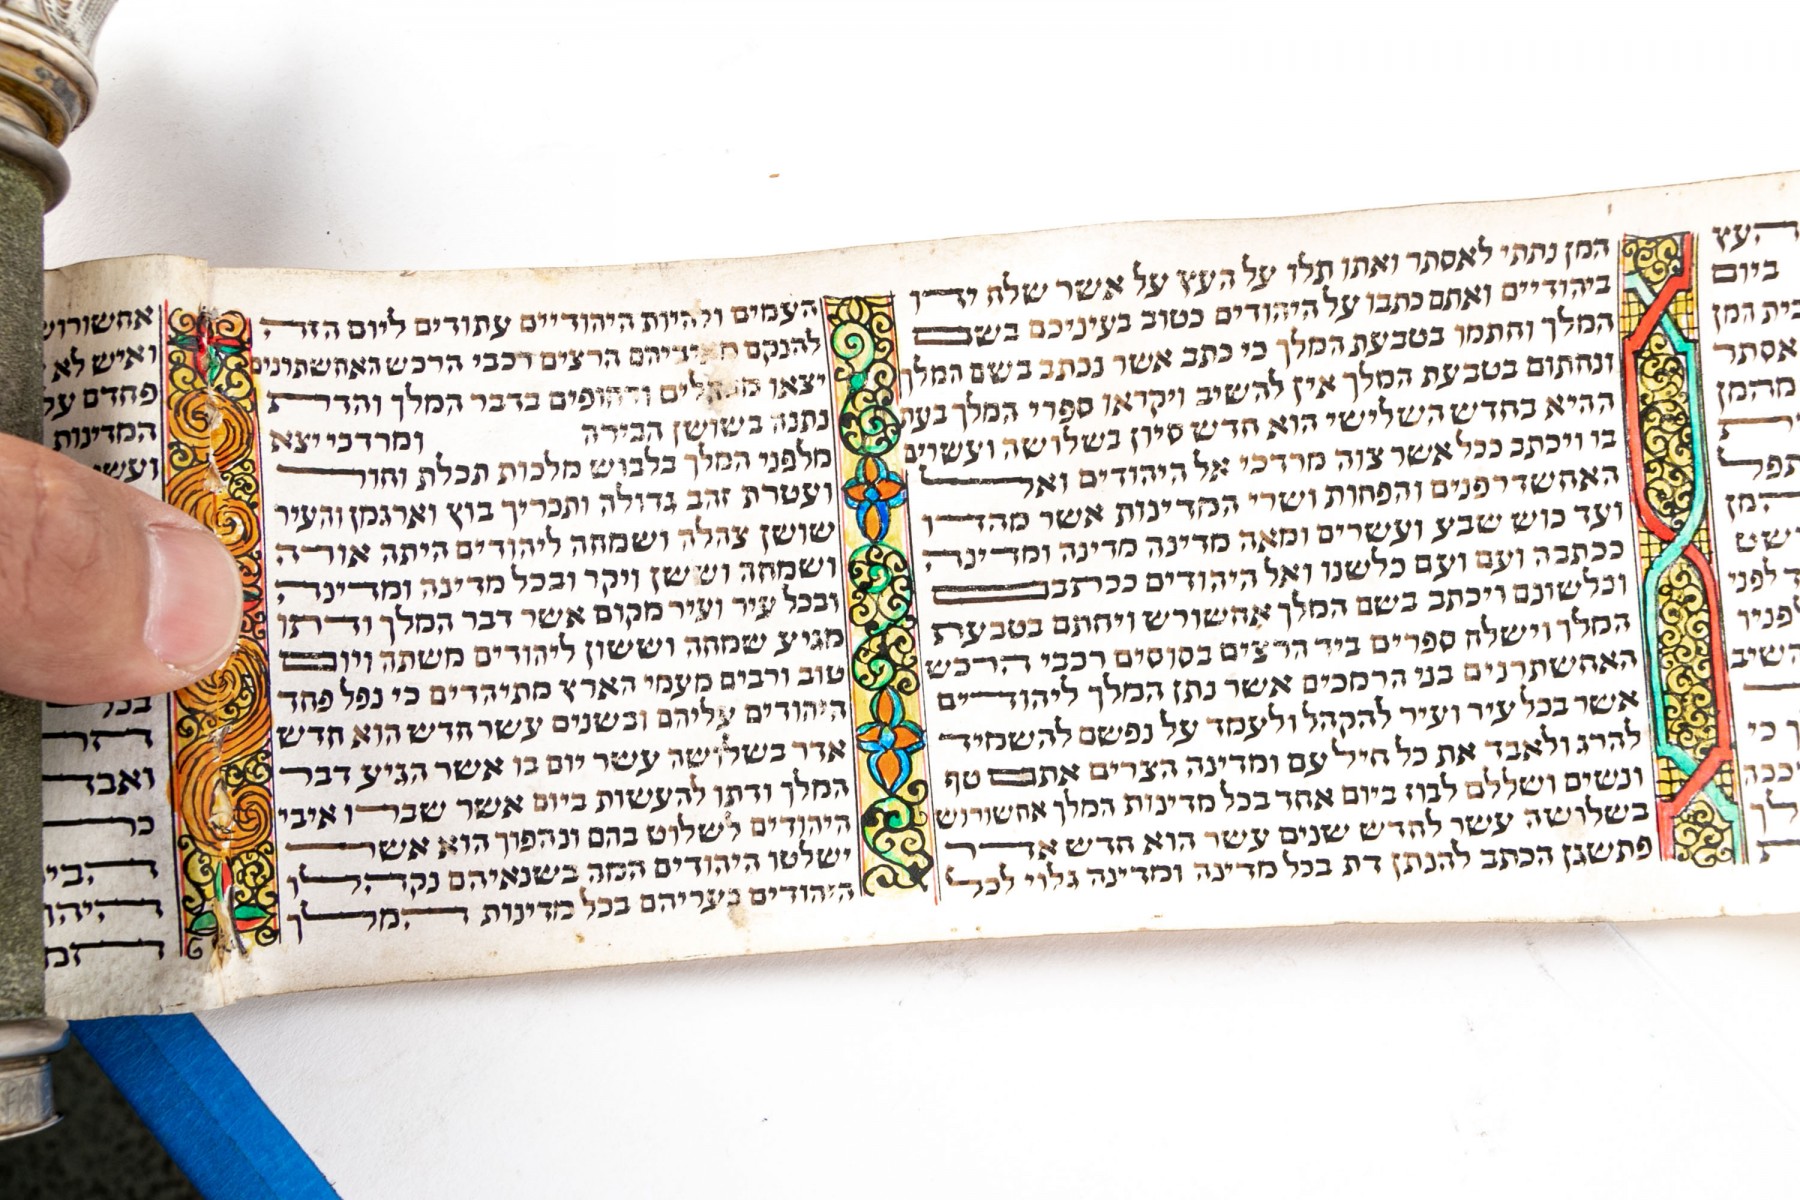 העץ
ביום
בית המן
אסתר
מהמן
תפל
המן
לפני
לפניו
השיב
כי
המן נתתי לאסתר ואתו תלו על העץ על אשר שלח ידו
ביהודיים ואתם כתבו על היהודים כטוב בעיניכם בשם
המלך וחתמו בטבעת המלך כי כתב אשר נכתב בשם המלך
ונחתום בטבעת המלך אין להשיב ויקראו ספרי המלך בעת
ההיא בחדש השלישי הוא חדש סיון בשלושה ועשרים
בו ויכתב ככל אשר צוה מרדכי אל היהודים ואל
האחשדרפנים והפחות ושרי המדינות אשר מהדו
ועד כוש שבע ועשרים ומאה מדינה מדינה ומדינה
ככתבה ועם ועם כלשנו ואל היהודים ככתבם
וכלשונם ויכתב בשם המלך אחשורש ויחתם בטבעת
המלך וישלח ספרים ביד הרצים בסוסים רכבי הרכש
האחשתרנים בני הרמכים אשר נתן המלך ליהודים
אשר בכל עיר ועיר להקהל ולעמד על נפשם להשמיד
להרג ולאבד את כל חיל עם ומדינה הצרים אתם טף
ונשים ושללם לבוז ביום אחד בכל מדינות המלך אחשורוש
בשלושה עשר לחדש שנים עשר הוא חדש אדר
פתשגן הכתב להנתן דת בכל מדינה ומדינה גלוי לכל
העמים ולהיות היהודיים עתודים ליום הזה
להנקם מאיביהם הרצים רכבי הרכש האחשתרנים
יצאו מבהלים ודחופים בדבר המלך והדת
נתנה בשושן הבירה ומרדכי יצא
מלפני המלך בלבוש מלכות תכלת וחור
ועטרת זהב גדולה ותכריך בוץ וארגמן והעיר
שושן צהלה ושמחה ליהודים היתה אורה
ושמחה וששן ויקר ובכל מדינה ומדינה
ובכל עיר ועיר מקום אשר דבר המלך ודתו
מגיע שמחה וששון ליהודים משתה ויום
טוב ורבים מעמי הארץ מתיהדים כי נפל פחד
היהודים עליהם ובשנים עשר חדש הוא חדש
אדר בשלושה עשר יום בו אשר הגיע דבר
המלך ודתו להעשות ביום אשר שברו איבי
היהודים לשלוט בהם ונהפוך הוא אשר
ישלטו היהודים המה בשנאיהם נקהלו
היהודים בעריהם בכל מדינות המלך
אחשורוש
ואיש לא
פחדם על
המדינות
ועשי
בכל
הר
ואבד